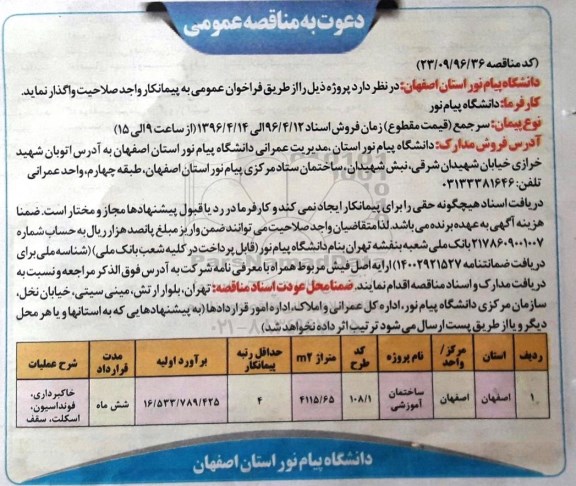 دعوت به مناقصه عمومی
(کد مناقصه ۲۳/۰۹/۹۶/۳۶)
دانشگاه پیام نور استان اصفهان: در نظر دارد پروژه ذیل را از طریق فراخوان عمومی به پیمانکار واجد صلاحیت واگذار نماید.
کارفرما: دانشگاه پیام نور
نوع پیمان: سرجمع (قیمت مقطوع) زمان فروش اسناد ۹۶/۴/۱۲ الی ۱۳۹۶/۴/۱۴ (از ساعت ۹ الی ۱۵)
آدرس فروش مدارک: دانشگاه پیام نور استان ،مدیریت عمرانی دانشگاه پیام نور استان اصفهان به آدرس اتوبان شهید
خرازی خیابان شهیدان شرقی، نبش شهیدان، ساختمان ستاد مرکزی پیام نور استان اصفهان، طبقه چهارم، واحد عمرانی
تلفن: ۰۳۱۳۳۳۸۱۶۴۶
دریافت اسناد هیچگونه حقی را برای پیمانکار ایجاد نمی کند و کارفرما در رد یا قبول پیشنهادها مجاز و مختار است. ضمنا
هزینه آگهی به عهده برنده می باشد. لذا متقاضیان واجد صلاحیت می توانند ضمن واریز مبلغ پانصد هزار ریال به حساب شماره
۲۱۷۸۶۰۹۰۰۱۰۰۷ بانک ملی شعبه بنفشه تهران بنام دانشگاه پیام نور (قابل پرداخت در کلیه شعب بانک ملی) (شناسه ملی برای
دریافت ضمانتنامه ۱۴۰۰۲۹۲۱۵۲۷) ارایه اصل فیش مربوط همراه با معرفی نامه شرکت به آدرس فوق الذکر مراجعه و نسبت به
دریافت مدارک و اسناد مناقصه اقدام نمایند. ضمنا محل عودت اسناد مناقصه: تهران، بلوار ارتش، مینی سیتی، خیابان نخل،
سازمان مرکزی دانشگاه پیام نور، اداره کل عمرانی و املاک، اداره امور قراردادها (به پیشنهادهایی که به استانها و یا هر محل
دیگر و یا از طریق پست ارسال می شود ترتیب اثر داده نخواهد شد)
ردیف استان مرکز/واحد نام پروژه کد طرح متراژ m2 حداقل رتبه پیمانکار برآورد اولیه مدت قرارداد شرح عملیات
۱ اصفهان اصفهان ساختمان آموزشی ۱۰۸/۱ ۴۱۱۵/۶۵ ۴ ۱۶/۵۳۳/۷۸۹/۴۲۵ شش ماه خاکبرداری، فونداسیون، اسکلت، سقف
دانشگاه پیام نور استان اصفهان